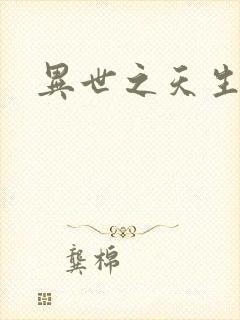 異世之天生
龔棉